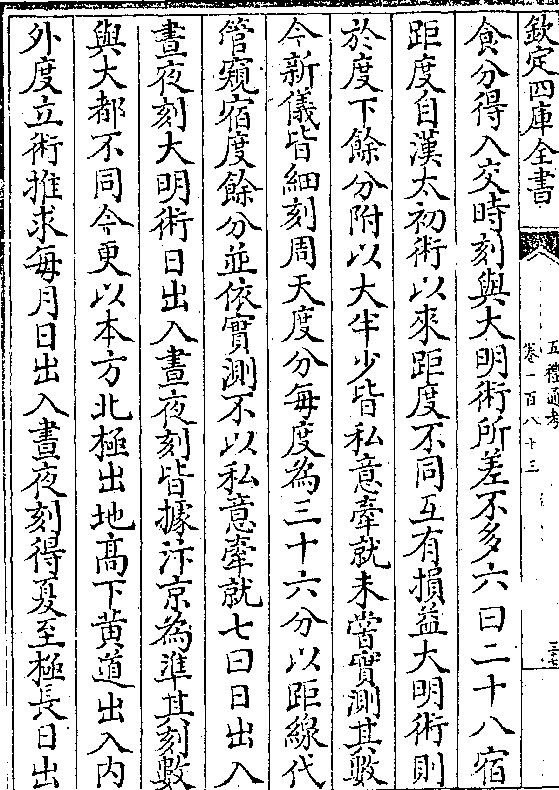 欽定四庫全書
五禮通考
卷一百八十三
三十
食分得入交時刻與大明術所差不多六曰二十八宿
距度自漢太初術以來距度不同互有損益大明術則
於度下餘分附以太半少皆私意牽就未嘗實測其數
今新儀皆細刻周天度分每度為三十六分以距線代
管窺宿度餘分並依實測不以私意牽就七曰日出入
晝夜刻大明術日出入晝夜刻皆據汴京為準其刻數
與大都不同今更以本方北極出地髙下黄道出入内
外度立術推求每月日出入晝夜刻得夏至極長日出